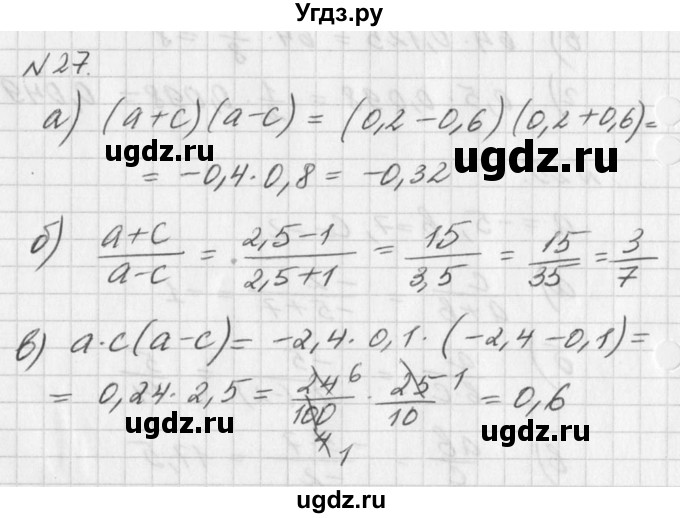 Угдз.ру
N 27.
а) (a+c)(a-c) = (0,2-0,6)(0,2+0,6)=
угдз.ru угдз.ru
= -0,4·0,8 = -0,32
б) \frac{a+c}{a-c} = \frac{2,5-1}{2,5+1} = \frac{15}{3,5} = \frac{15}{35} = \frac{3}{7}
в) a·c(a-c) = -2,4·0,1·(-2,4-0,1) =
= 0,24·2,5 = \frac{24 6}{100 4 1} · \frac{25 1}{10} = 0,6
угдз.ru угдз.ru
угдз.ru